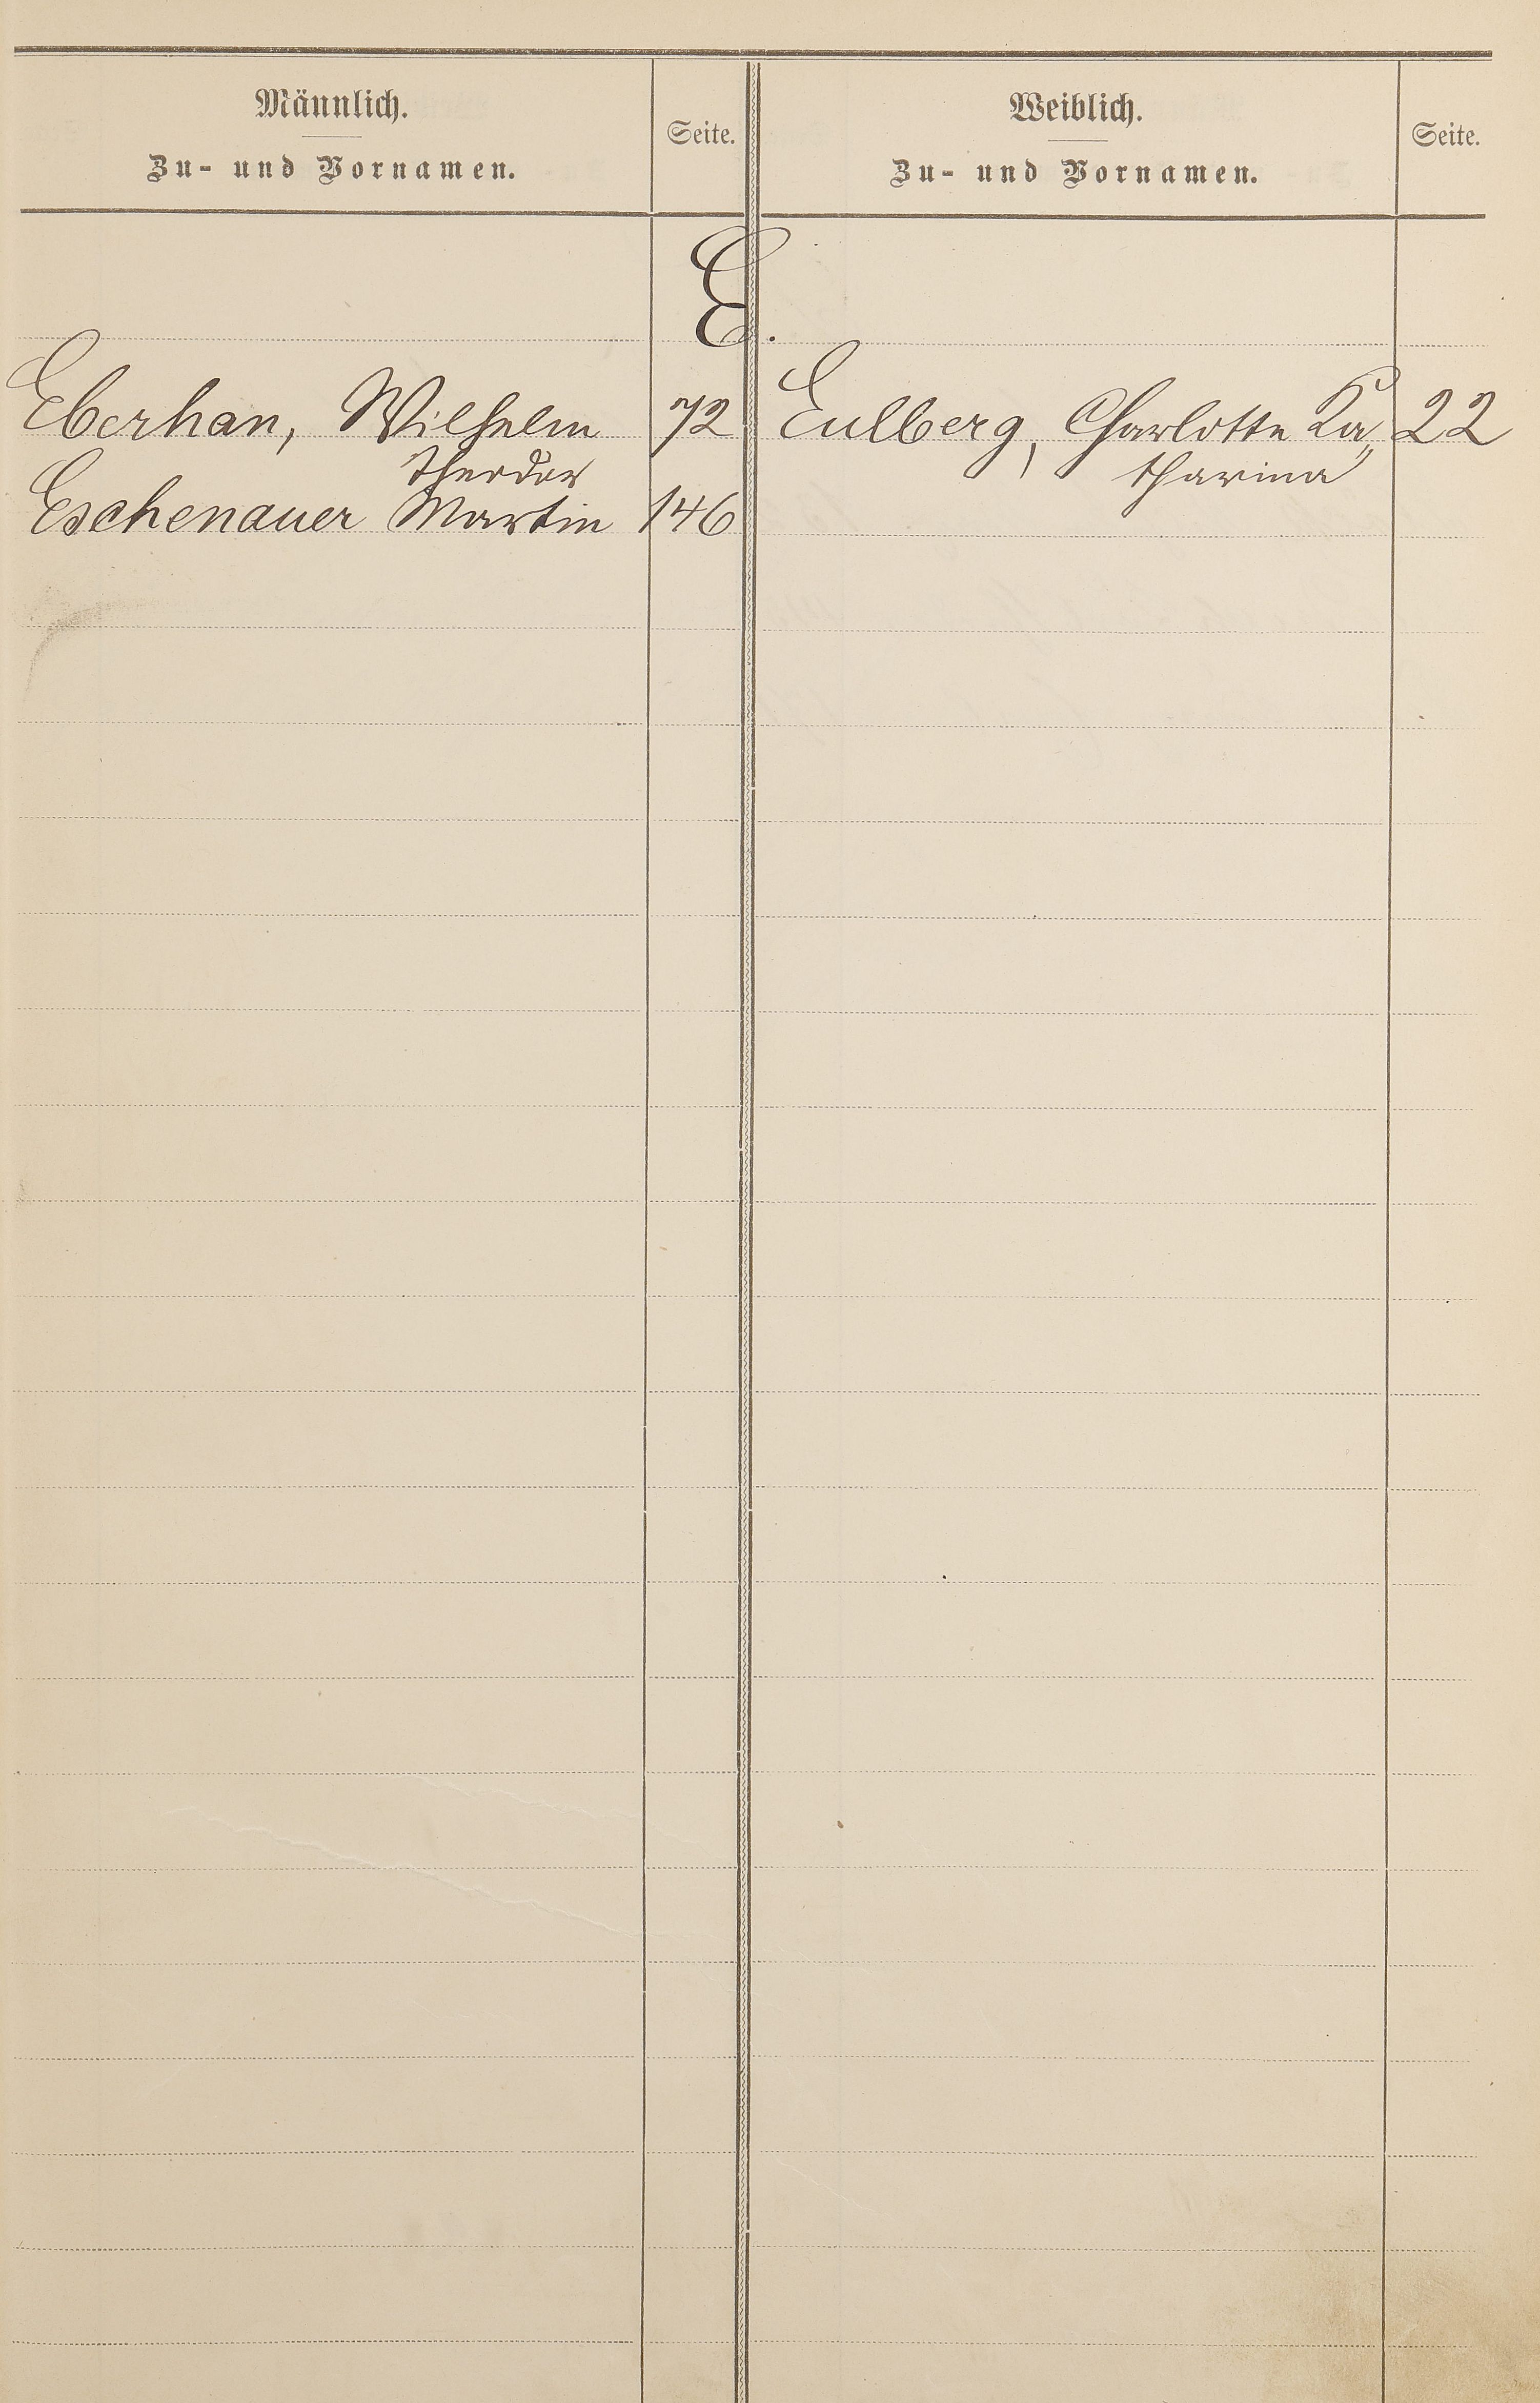 Männlich.
Zu- und Vornamen.
Seite.
Weiblich.
Zu- und Vornamen.
Seite.
E.
Eberhan, Wilhelm 72
Theodor
Eschenauer Martin 146
Eulberg, Charlotte Ka„ 22
tharina